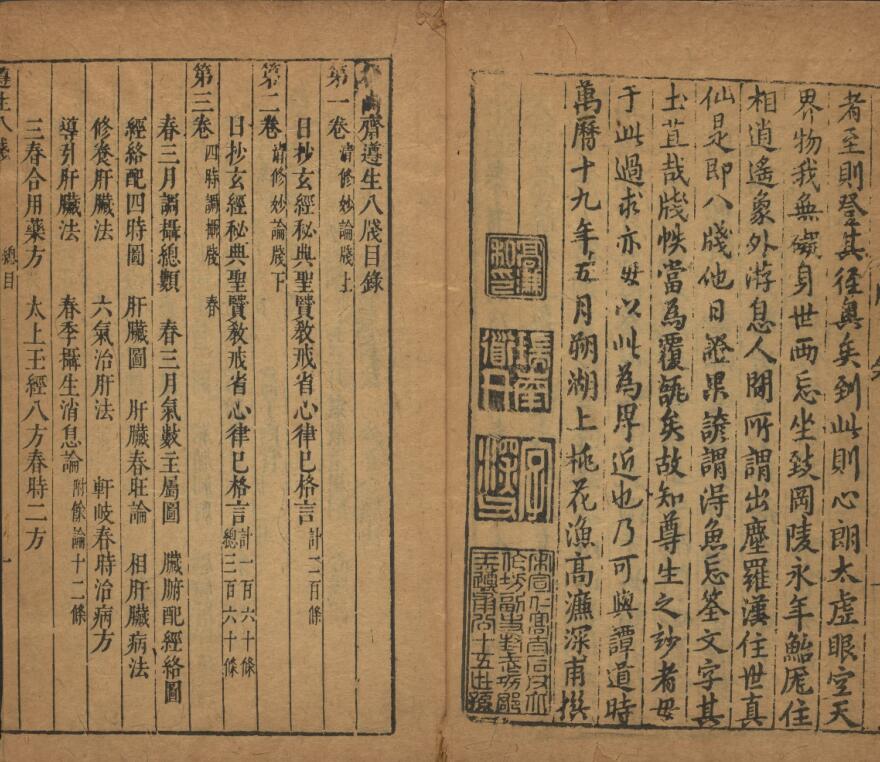 者至則登其徑奧矣到此則心朗太虛眼空天
界物我無礙身世兩忘坐致岡陵永年鮐厖住
相逍遙象外游息人間所謂出塵羅漢住世真
仙是即八牋他日證果諺謂得魚忘筌文字其
土苴哉牋帙當為覆瓿矣故知尊生之妙者毋
于此過求亦毋以此為卑近也乃可與譚道時
萬曆十九年五月朔湖上桃花漁高濂深甫撰
高濂
瑞南
道人
齋遵生八牋目錄
第一卷 清修妙論牋上
日抄玄經秘典聖賢教戒省心律己格言 計二百條
第二卷 清修妙論牋下
日抄玄經秘典聖賢教戒省心律己格言 計一百六十條
總三百六十條
第三卷 四時調攝牋 春
春三月調攝總類 春三月氣數主屬圖 臟腑配經絡圖
經絡配四時圖 肝臟圖 肝臟春旺論 相肝臟病法
修養肝臟法 六氣治肝法 軒岐春時治病方
導引肝臟法 春季攝生消息論 附餘論十二條
三春合用藥方 太上玉經八方春時二方
遵生八牋 總目 一